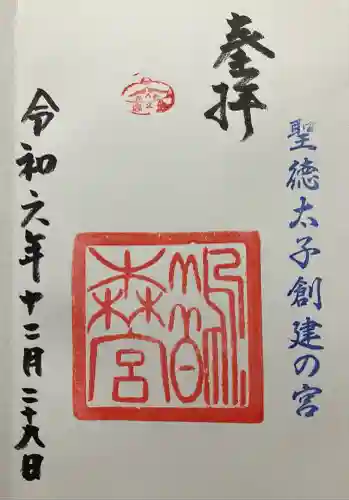 聖徳太子創建の宮
奉拝
鵲森宮
令和六年十二月二十八日